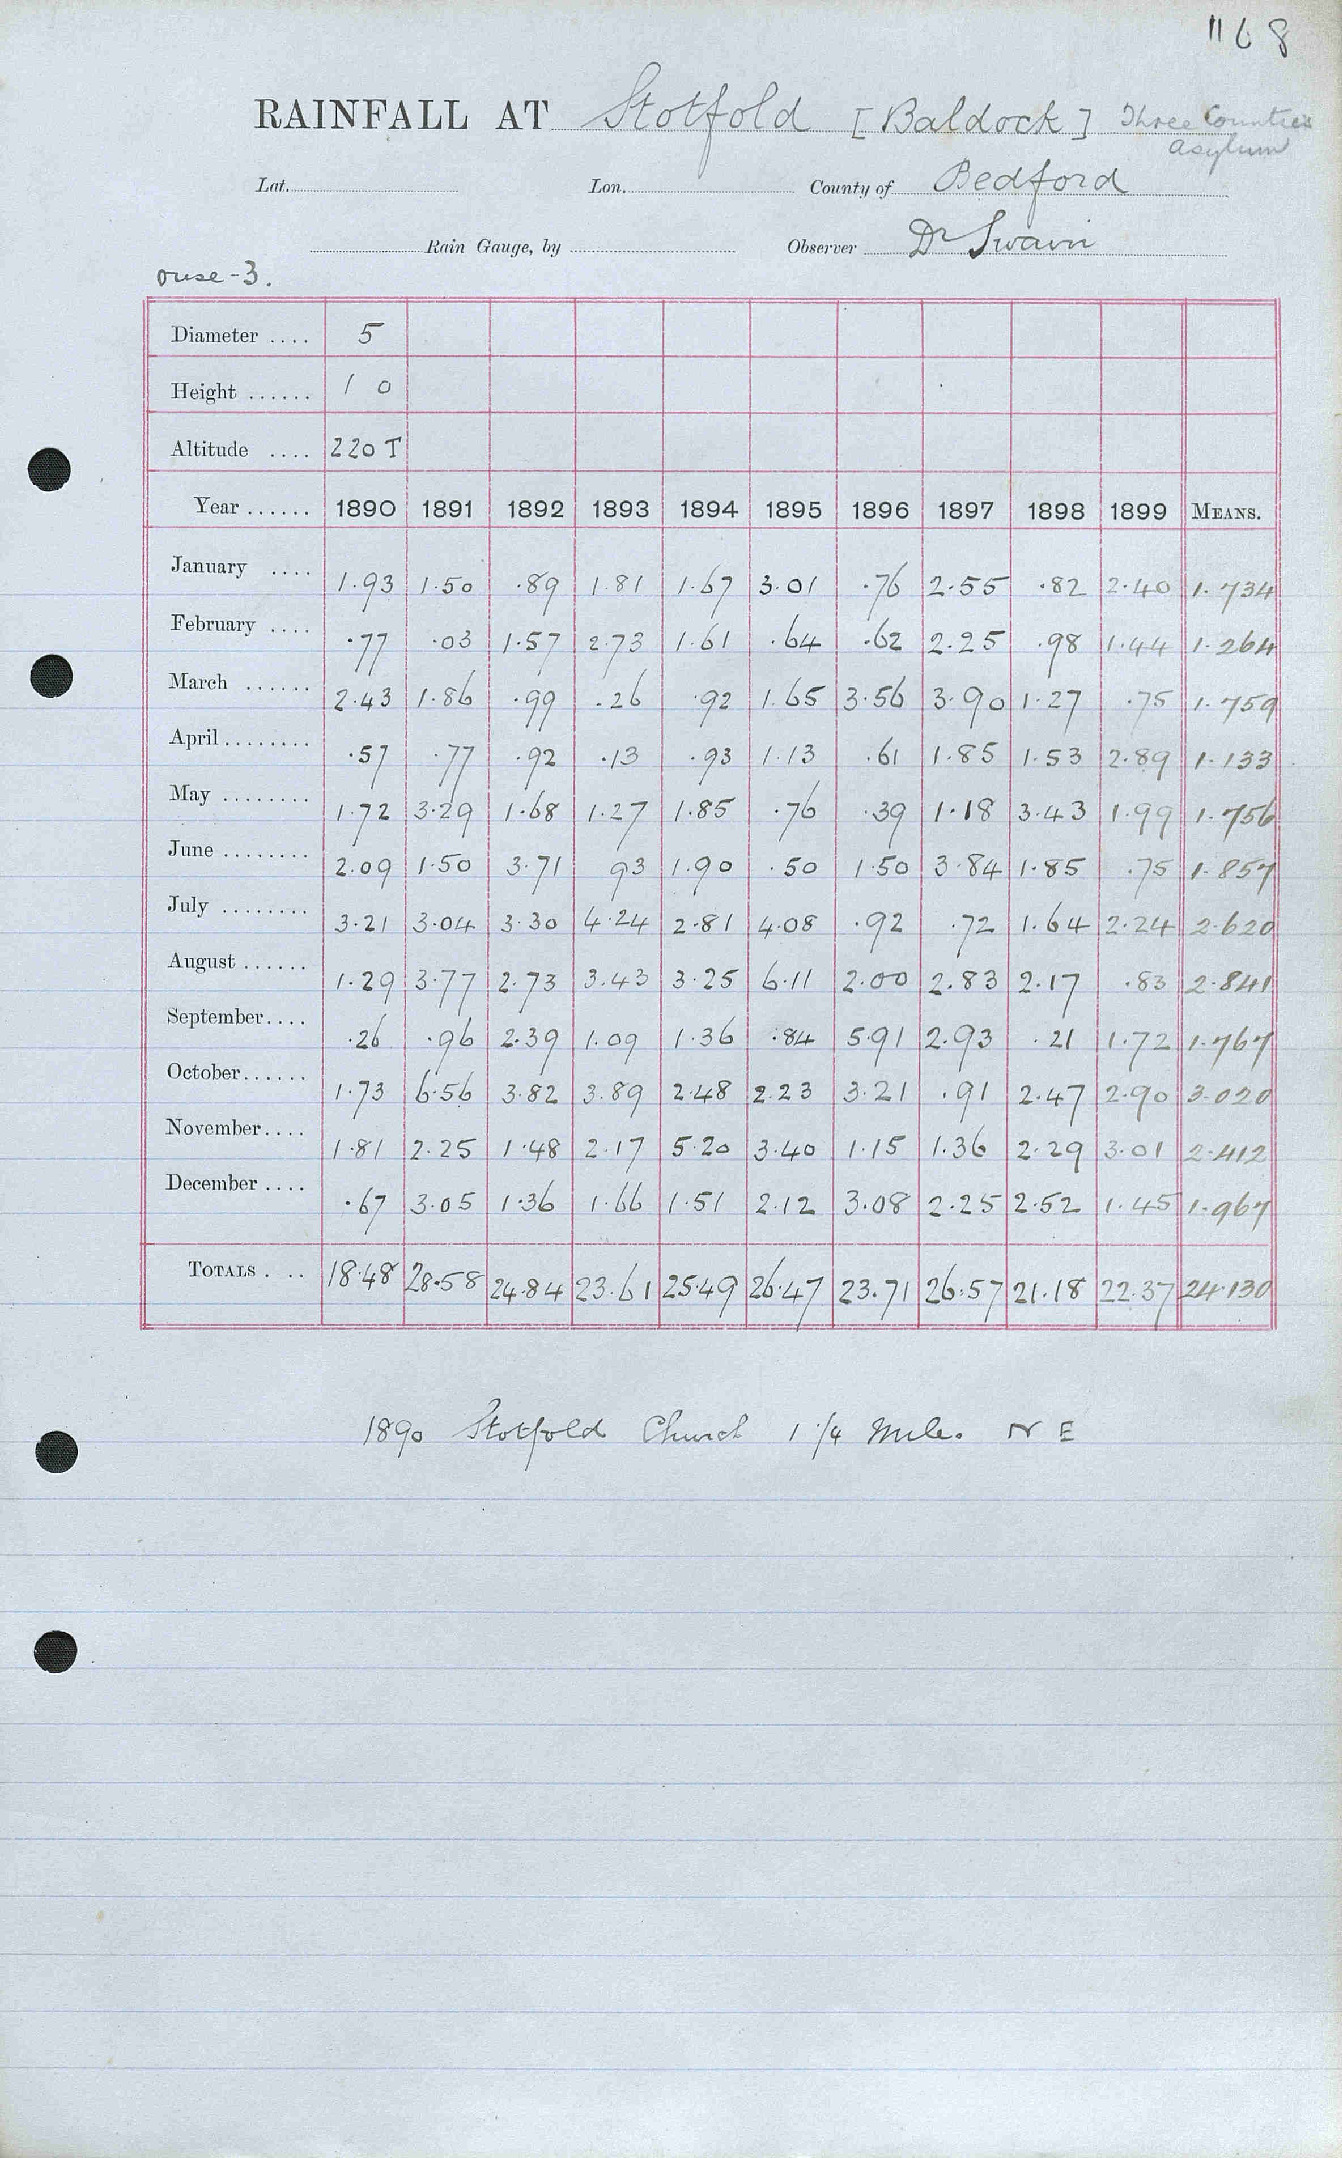 "68
RAINFALL AT Stotfold [Baldock] Three Counties
Asylum
Lat. Lon. County of Bedford
Rain Gauge, by Observer Dr Swain
ouse-3.
Diameter .... 5
Height ...... 1 0
Altitude .... 220 T
Year ...... 1890 1891 1892 1893 1894 1895 1896 1897 1898 1899 MEANS.
January .... 1.93 1.50 .89 1.81 1.67 3.01 .76 2.55 .82 2.40 1.734
February .... .77 .03 1.57 2.73 1.61 .64 .62 2.25 .98 1.44 1.264
March ...... 2.43 1.86 .99 .26 .92 1.65 3.56 3.90 1.27 .75 1.759
April ........ .57 .77 .92 .13 .93 1.13 .61 1.85 1.53 2.89 1.133
May ........ 1.72 3.29 1.68 1.27 1.85 .76 .39 1.18 3.43 1.99 1.756
June ........ 2.09 1.50 3.71 93 1.90 .50 1.50 3.84 1.85 .75 1.857
July ........ 3.21 3.04 3.30 4.24 2.81 4.08 .92 .72 1.64 2.24 2.620
August ...... 1.29 3.77 2.73 3.43 3.25 6.11 2.00 2.83 2.17 .83 2.841
September.... .26 .96 2.39 1.09 1.36 .84 5.91 2.93 .21 1.72 1.767
October...... 1.73 6.56 3.82 3.89 2.48 2.23 3.21 .91 2.47 2.90 3.020
November.... 1.81 2.25 1.48 2.17 5.20 3.40 1.15 1.36 2.29 3.01 2.412
December .... .67 3.05 1.36 1.66 1.51 2.12 3.08 2.25 2.52 1.45 1.967
TOTALS . .. 18.48 28.58 24.84 23.61 25.49 26.47 23.71 26.57 21.18 22.37 24.130
1890 Stotfold Church 1 1/4 Mile. N E